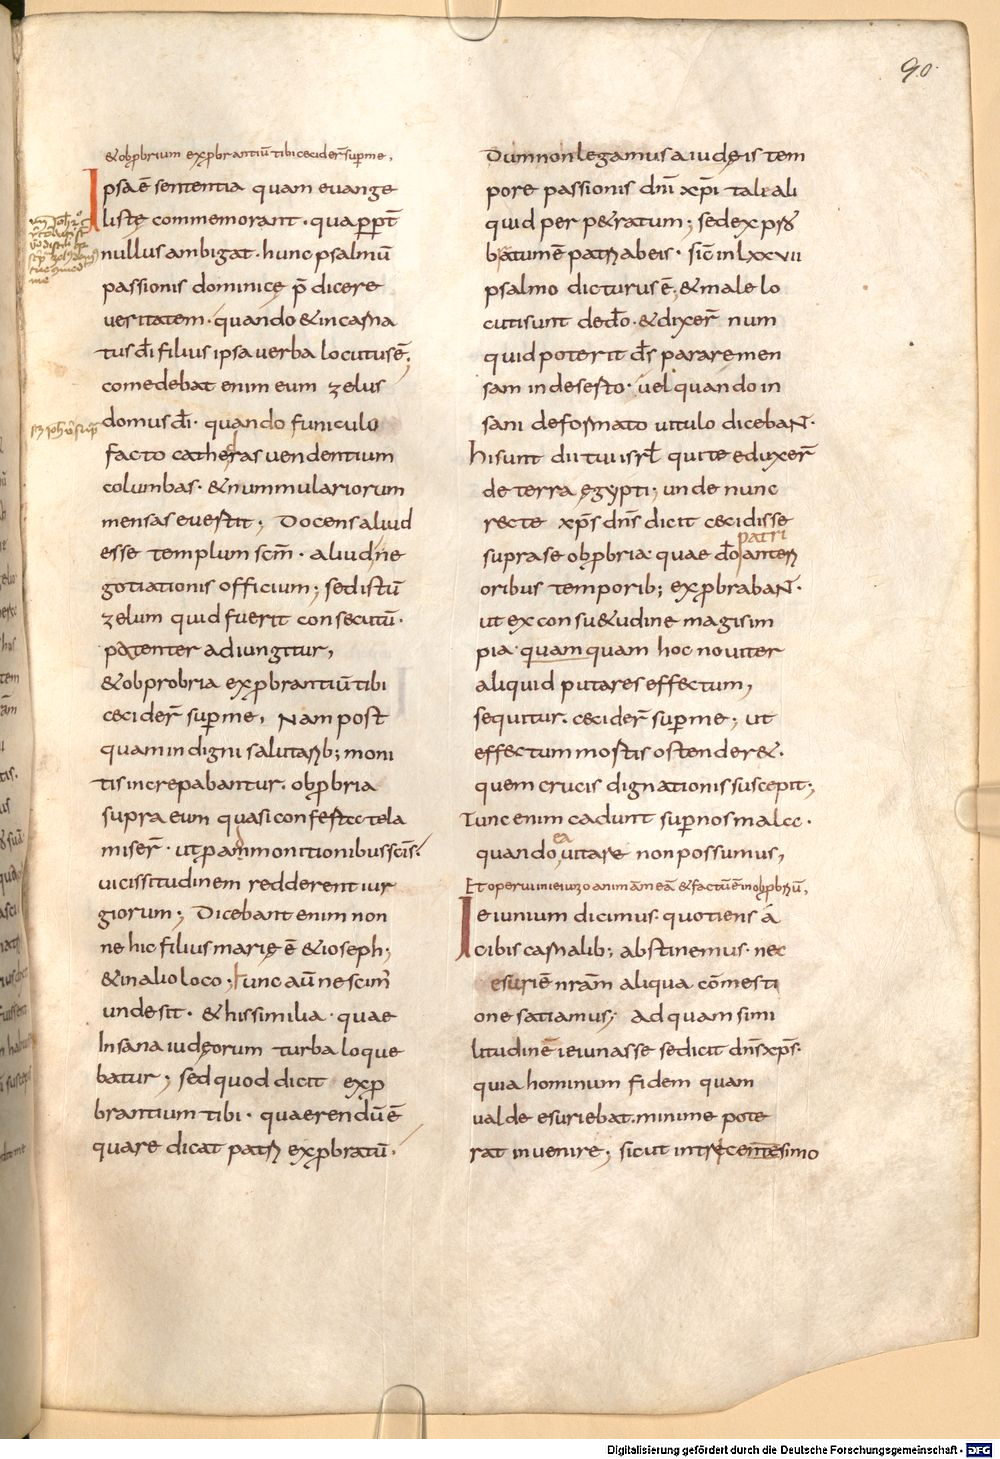 90.
& obp̱brium exp̱brantiū tibi cecider̄ sup̱ me,
Ipsa ē sententia quam euange
listę commemorant · qua pp̱t̄
nullus ambigat · hunc psalmū
passionis dominicę p̄ dicere
ueritatem · quando & incarna
tus d̄i filius ipsa uerba locutus ē;
comedebat enim eum zelus
domus d̄i · quando funiculo
facto cathedras uendentium
columbas · & nummulariorum
mensas euertit; Docens aliud
esse templum sc̄m · aliud ne
gotiationis officium; sed istū
zelum quid fuerit consecutū ·
patenter adiungitur,
& obprobria exp̱brantiū tibi
cecider̄ sup̱ me, Nam post
quam indigni salutarib; moni
tis increpabantur · obp̱bria
supra eum quasi confestec tela
miser̄ · ut p̱ ammonitionibus sc̄is ·
uicissitudinem redderent iur
giorum; Dicebant enim non
ne hic filius marię ē & ioseph;
& in alio loco; hunc aū nescim̄
unde sit · & his similia · quae
Insana iudęorum turba loque
batur; sed quod dicit exp̱
brantium tibi · quaerendū ē
quare dicat patri exp̱bratū ·
Dum non legamus a iudęis tem
pore passionis dn̄i xp̄i tale ali
quid perpetratum; sed exp̱bratum ē patri abeis · sic̄ in lxxvii
psalmo dicturus ē; & male lo
cuti sunt de d̄o · & dixer̄ num
quid poterit d̄s parare men
sam in deserto · uel quando in
sani deformato uitulo dicebant ·
hi sunt dii tui isrl̄ qui te eduxer̄
de terra ęgypti; unde nunc
recte xp̄s dn̄s dicit cecidisse
patri
supra se obp̱bria · quae d̄o anteri
oribus temporib; exp̱brabant ·
ut ex consu&udine magis im
pia · quam quam hoc nouiter
aliquid putares effectum,
sequitur · cecider̄ sup̱ me; ut
effectum mortis ostender& ·
quem crucis dignationis suscepit;
Tunc enim cadunt sup̱ nos mala ·
ea
quando uitare non possumus,
Et operui in ieiunio animā meā & factū ē in obp̱briū,
Ieiunium dicimus · quotiens a
cibis carnalib; abstinemus · nec
esuriē nrām aliqua cōmesti
one satiamus; ad quam simi
litudinē ieiunasse se dicit dn̄s xp̄s ·
quia hominum fidem quam
ualde esuriebat · minime pote
rat inuenire; sicut in trecentesimo
Digitalisierung gefördert durch die Deutsche Forschungsgemeinschaft · DFG